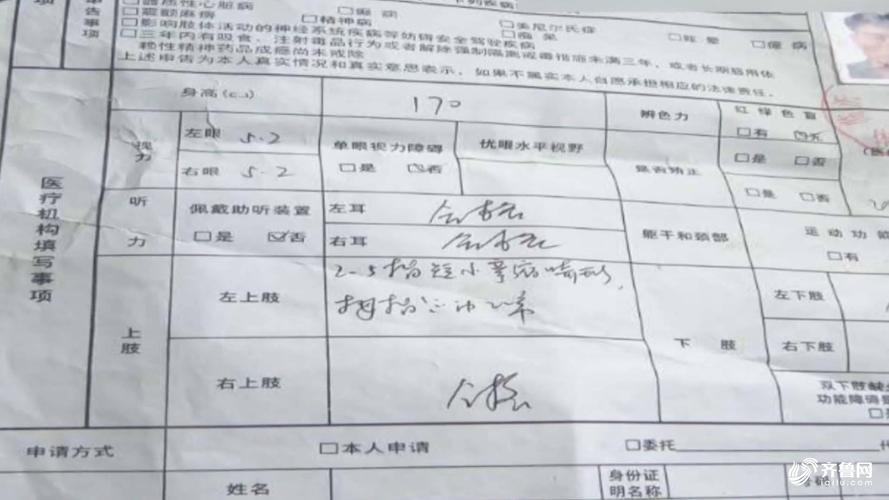 器质性心脏病 □癫痫
□震颤麻痹 □精神病 □美尼尔氏症 □眩晕 □癔病
□影响肢体活动的神经系统疾病等妨碍安全驾驶疾病 □痴呆
□三年内有吸食、注射毒品行为或者解除强制隔离戒毒措施未满三年，或者长期服用依
赖性精神药品成瘾尚未戒除
上述申告为本人真实情况和真实意思表示，如果不属实本人自愿承担相应的法律责任。
医疗机构填写事项
身高(cm) 170 辨色力 红绿色盲
□有 ☑无
视力 左眼 5.2 单眼视力障碍 优眼水平视野 是否矫正 □是 □否
右眼 5.2 □是 ☑否 □是 □否
听力 佩戴助听装置 左耳 合格 躯干和颈部 运动功能
□是 ☑否 右耳 合格 □有
上肢 左上肢 2-5指短小 畸形， 下肢 左下肢
拇指 正常
右下肢
右上肢 合格 双下肢缺
功能障碍
□是
申请方式 □本人申请 □委托 代
姓名 身份证
明名称
齐鲁网
iqilu.com